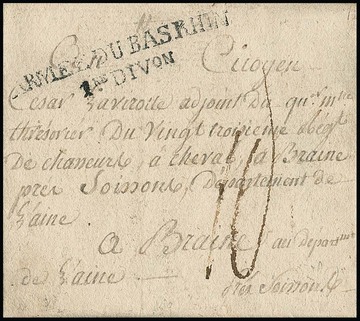 ARMÉE DU BAS RHIN
1RE DIVON
Citoyen
Cesar Lavroitte adjoint du qer mtre
thresorier Du Vingt troisieme
De chasseurs, à cheval, a Braine
pres Soissons, Departement de
L'aine
10
a Braine au depart
de L'aine
près Soissons